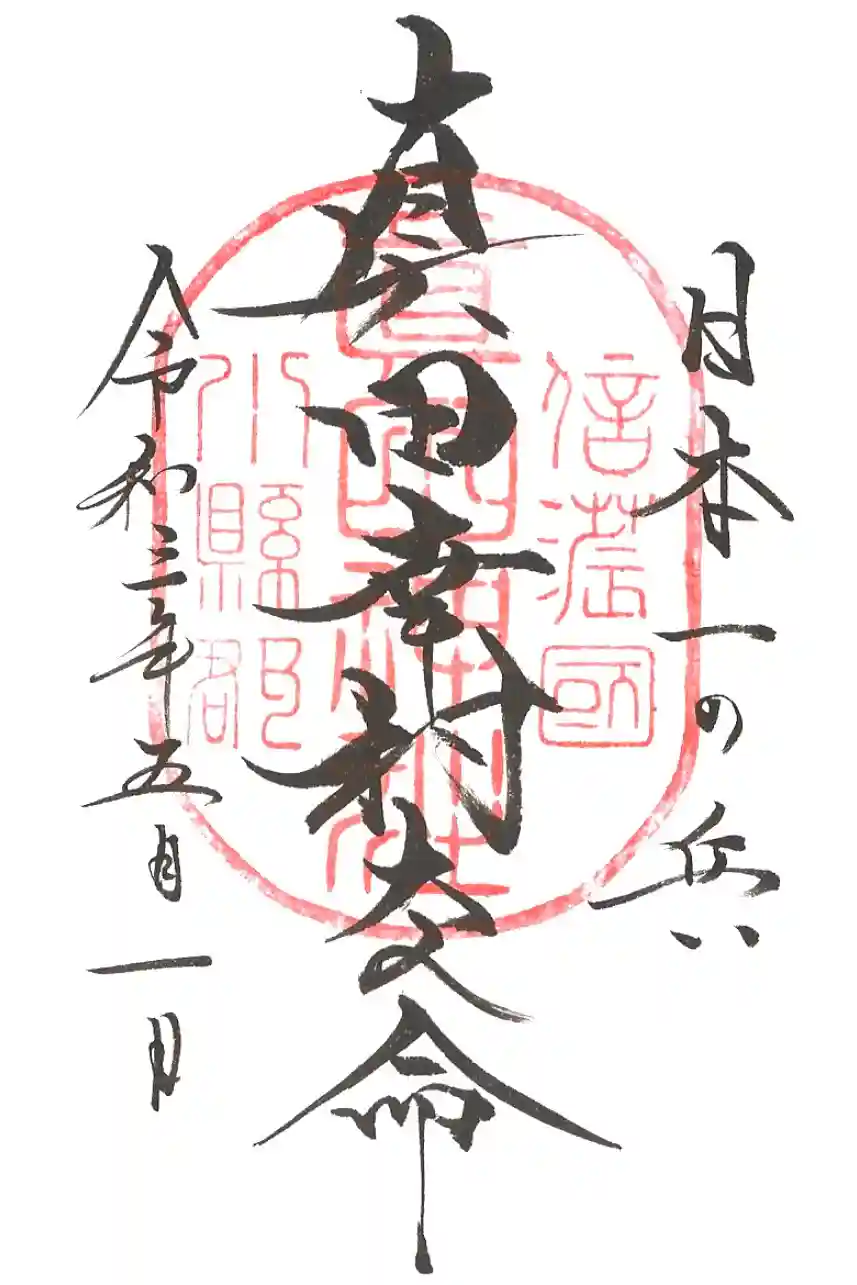 日本一の兵
信濃國
眞田幸村大命
眞田神社
小縣郡
令和三年五月一日